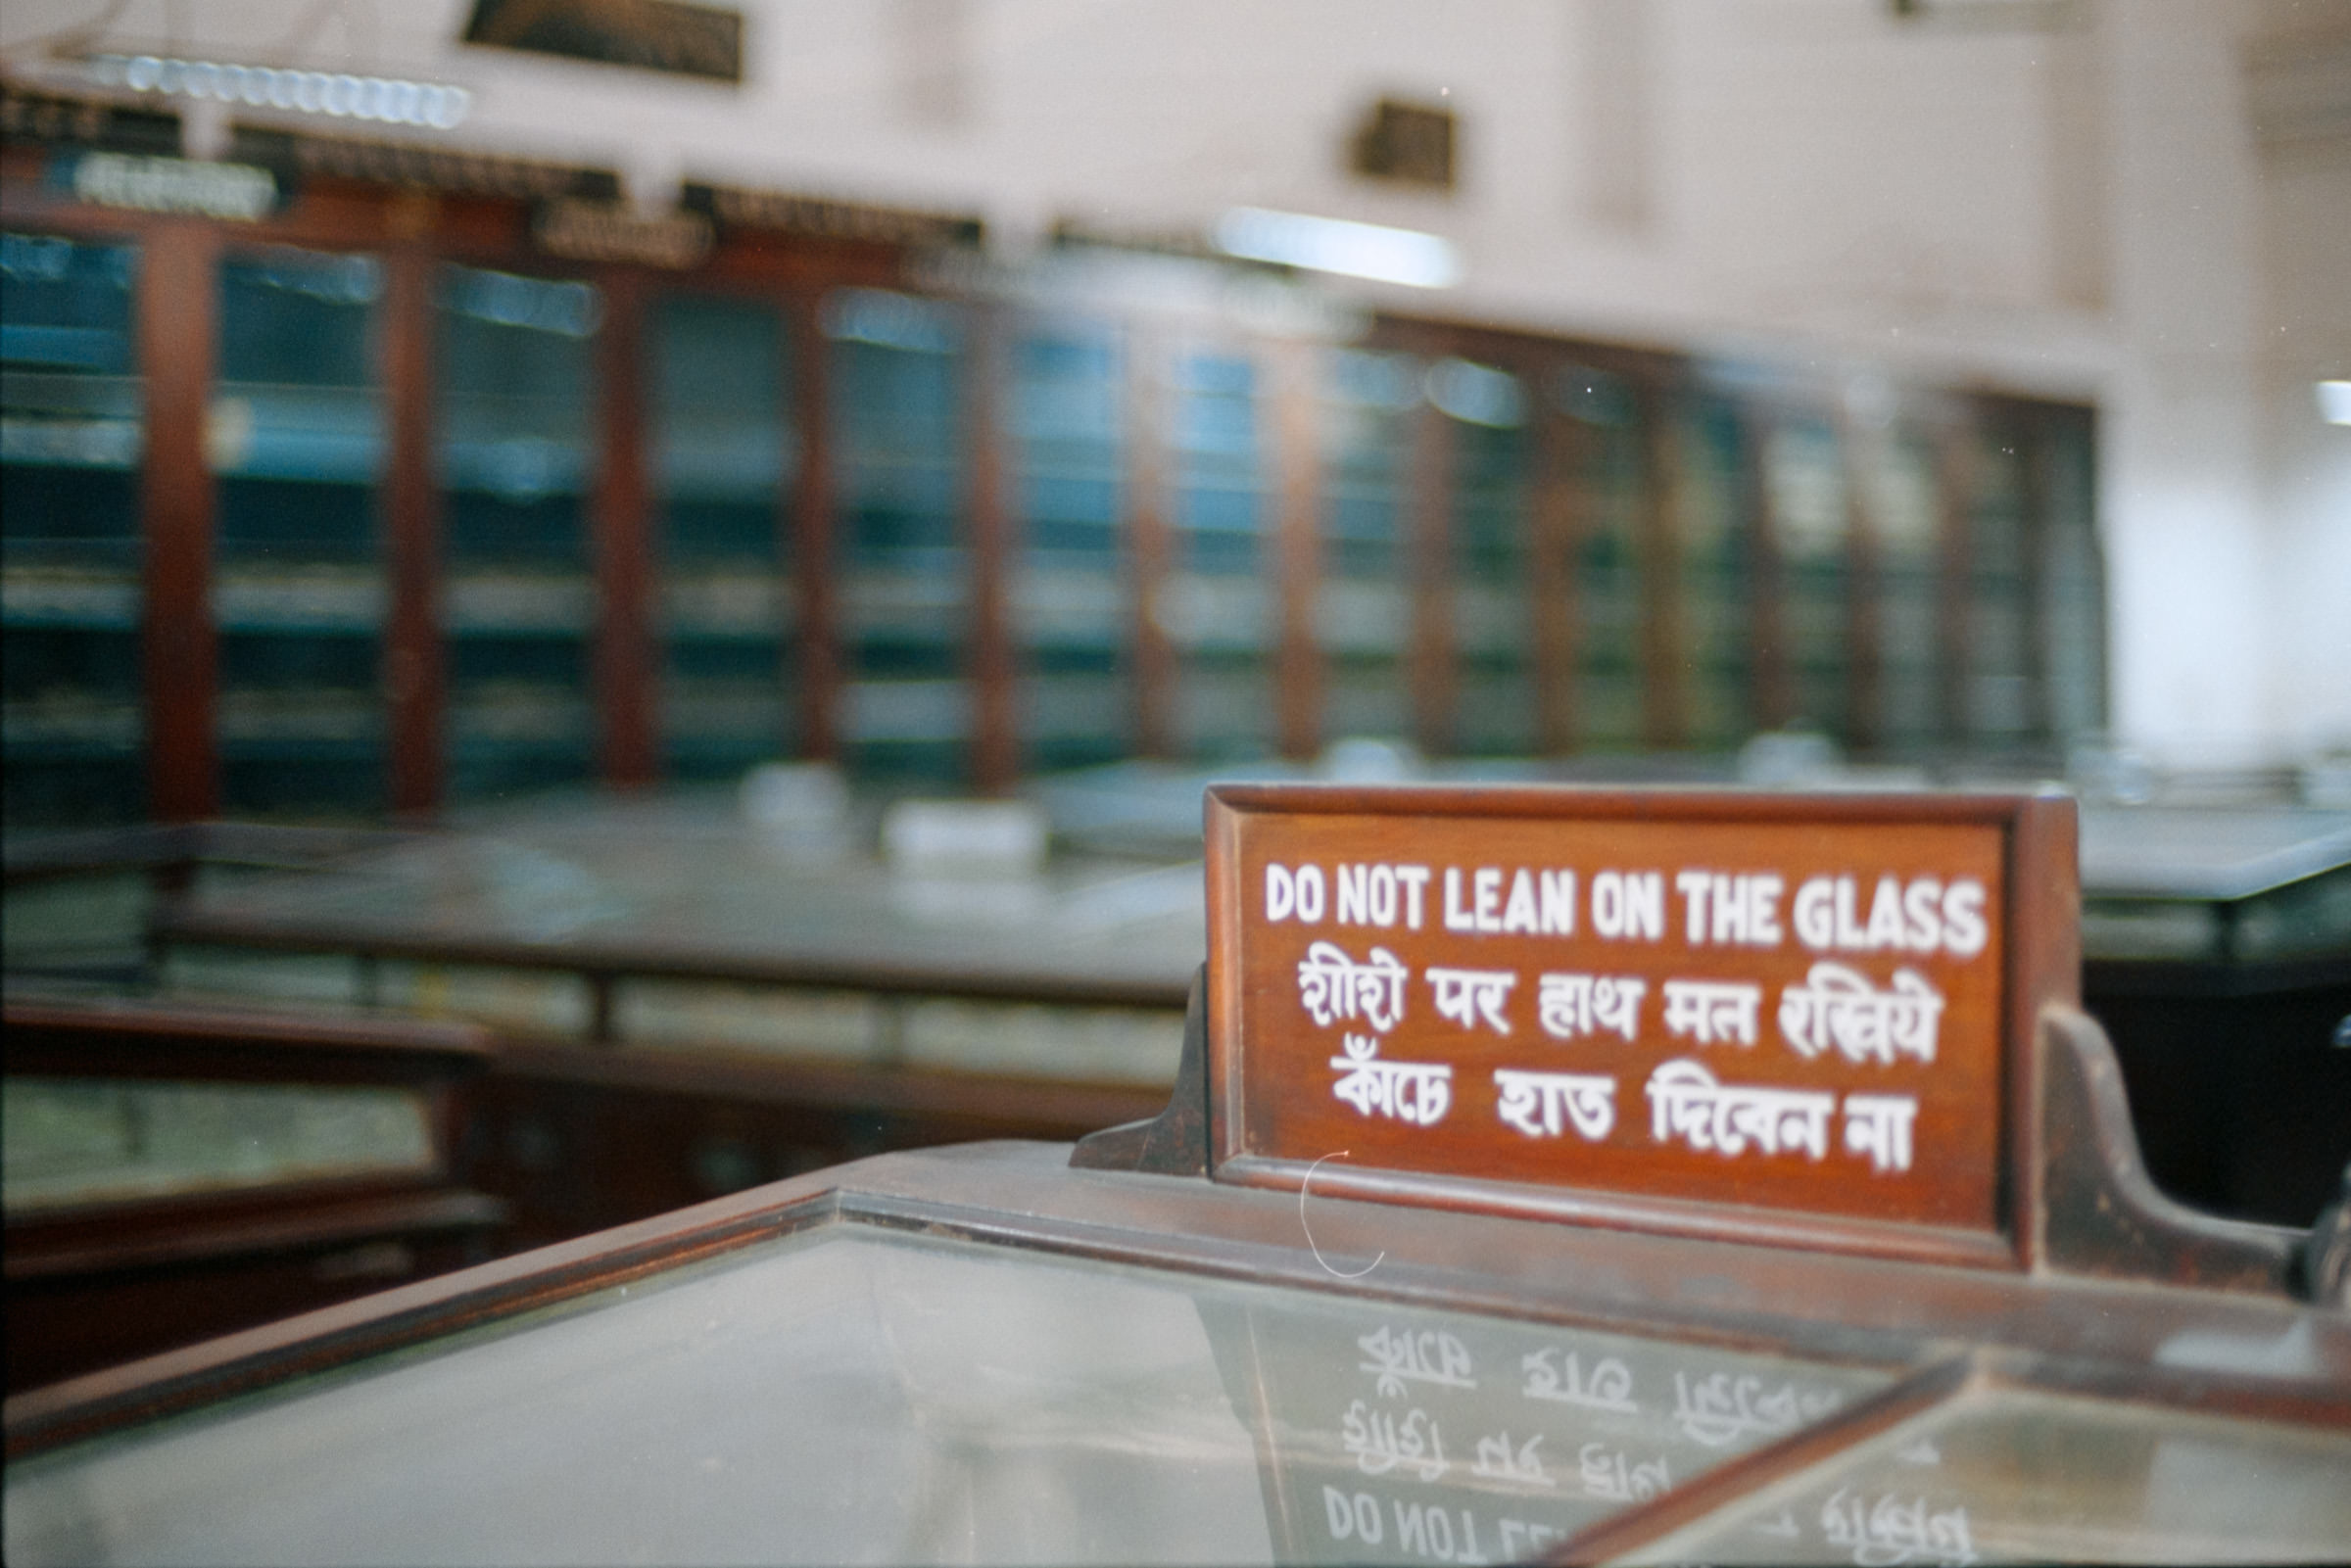 DO NOT LEAN ON THE GLASS
शीशे पर हाथ मत रखिये
কাঁচে হাত দিবেন না